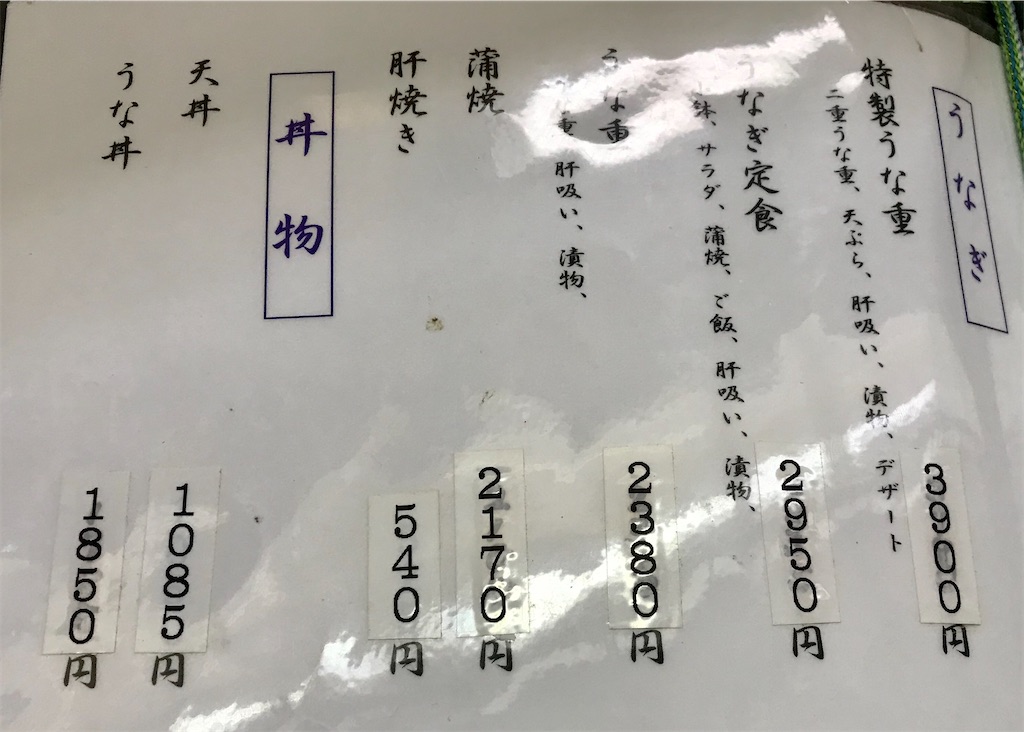 うなぎ
特製うな重 3900円
二重うな重、天ぷら、肝吸い、漬物、デザート
なぎ定食 2950円
サラダ、蒲焼、ご飯、肝吸い、漬物、
うな重 2380円
重、肝吸い、漬物、
蒲焼 2170円
肝焼き 540円
丼物
天丼 1085円
うな丼 1850円